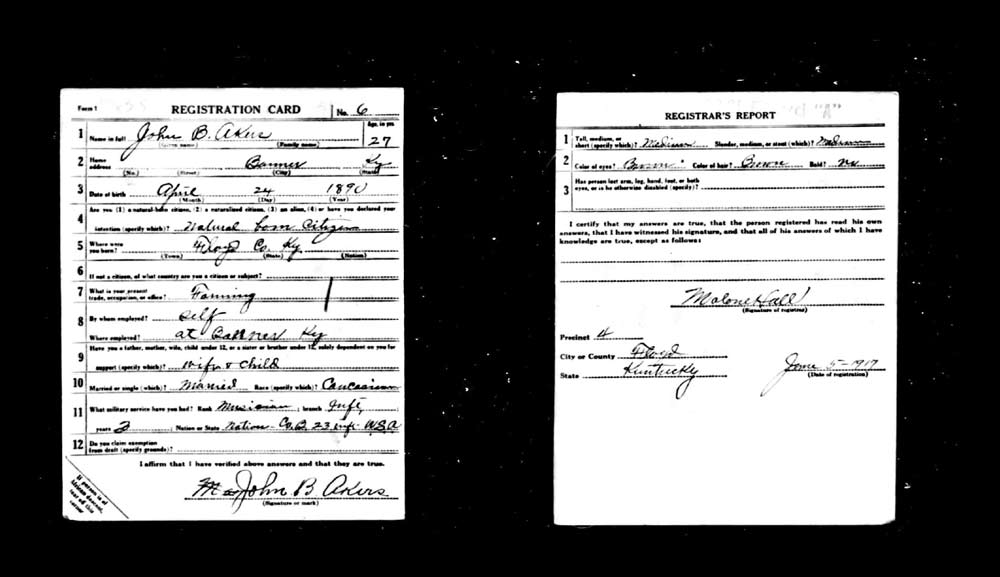 Form 1 REGISTRATION CARD No. 6
1 Name in full John B. Akers Age, in yrs. 27
(Given name) (Family name)
2 Home address Banner Ky
(No.) (Street) (City) (State)
3 Date of birth April 24 1890
(Month) (Day) (Year)
4 Are you (1) a natural-born citizen, (2) a naturalized citizen, (3) an alien, (4) or have you declared your
intention (specify which)? Natural born Citizen
5 Where were you born? Floyd Co. Ky
(Town) (State) (Nation)
6 If not a citizen, of what country are you a citizen or subject?
7 What is your present trade, occupation, or office? Farming
8 By whom employed? Self
Where employed? at Banner Ky
9 Have you a father, mother, wife, child under 12, or a sister or brother under 12, solely dependent on you for
support (specify which)? Wife & Child
10 Married or single (which)? Married Race (specify which)? Caucasian
11 What military service have you had? Rank Musician ; branch Inft
years 3 ; Nation or State Nation Co. B. 23 Inft. U.S.A.
12 Do you claim exemption from draft (specify grounds)?
I affirm that I have verified above answers and that they are true.
John B Akers
(Signature or mark)
If person is of African descent, tear off this corner
REGISTRAR'S REPORT
1 Tall, medium, or short (specify which)? Medium Slender, medium, or stout (which)? Medium
2 Color of eyes? Brown Color of hair? Brown Bald? no
3 Has person lost arm, leg, hand, foot, or both eyes, or is he otherwise disabled (specify)?
I certify that my answers are true, that the person registered has read his own
answers, that I have witnessed his signature, and that all of his answers of which I have
knowledge are true, except as follows:
Malone Hall
(Signature of registrar)
Precinct 4
City or County Floyd
State Kentucky
June 5-1917
(Date of registration)